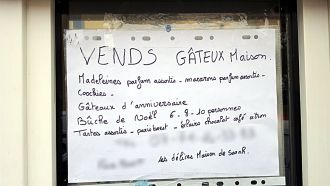 VENDS GÂTEUX Maison.
Madeleines parfum assortis - macarons parfum assortis -
Coockies -
Gâteaux d'anniversaire
Bûche de Noël 6 - 8 - 10 personnes
Tartes assortis - paris brest - éclairs chocolat café citron
Les délices Maison de SaraR.